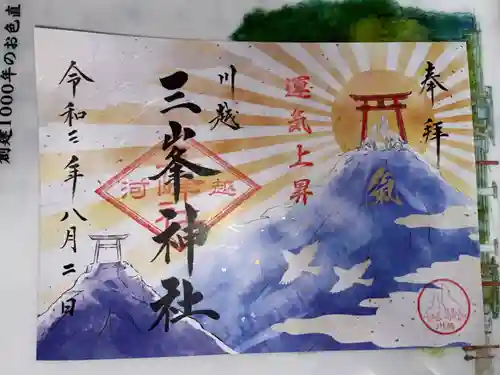 奉拝
氣
運気上昇
川越
三峯神社
令和三年八月二日
川越
創建1000年のお色直